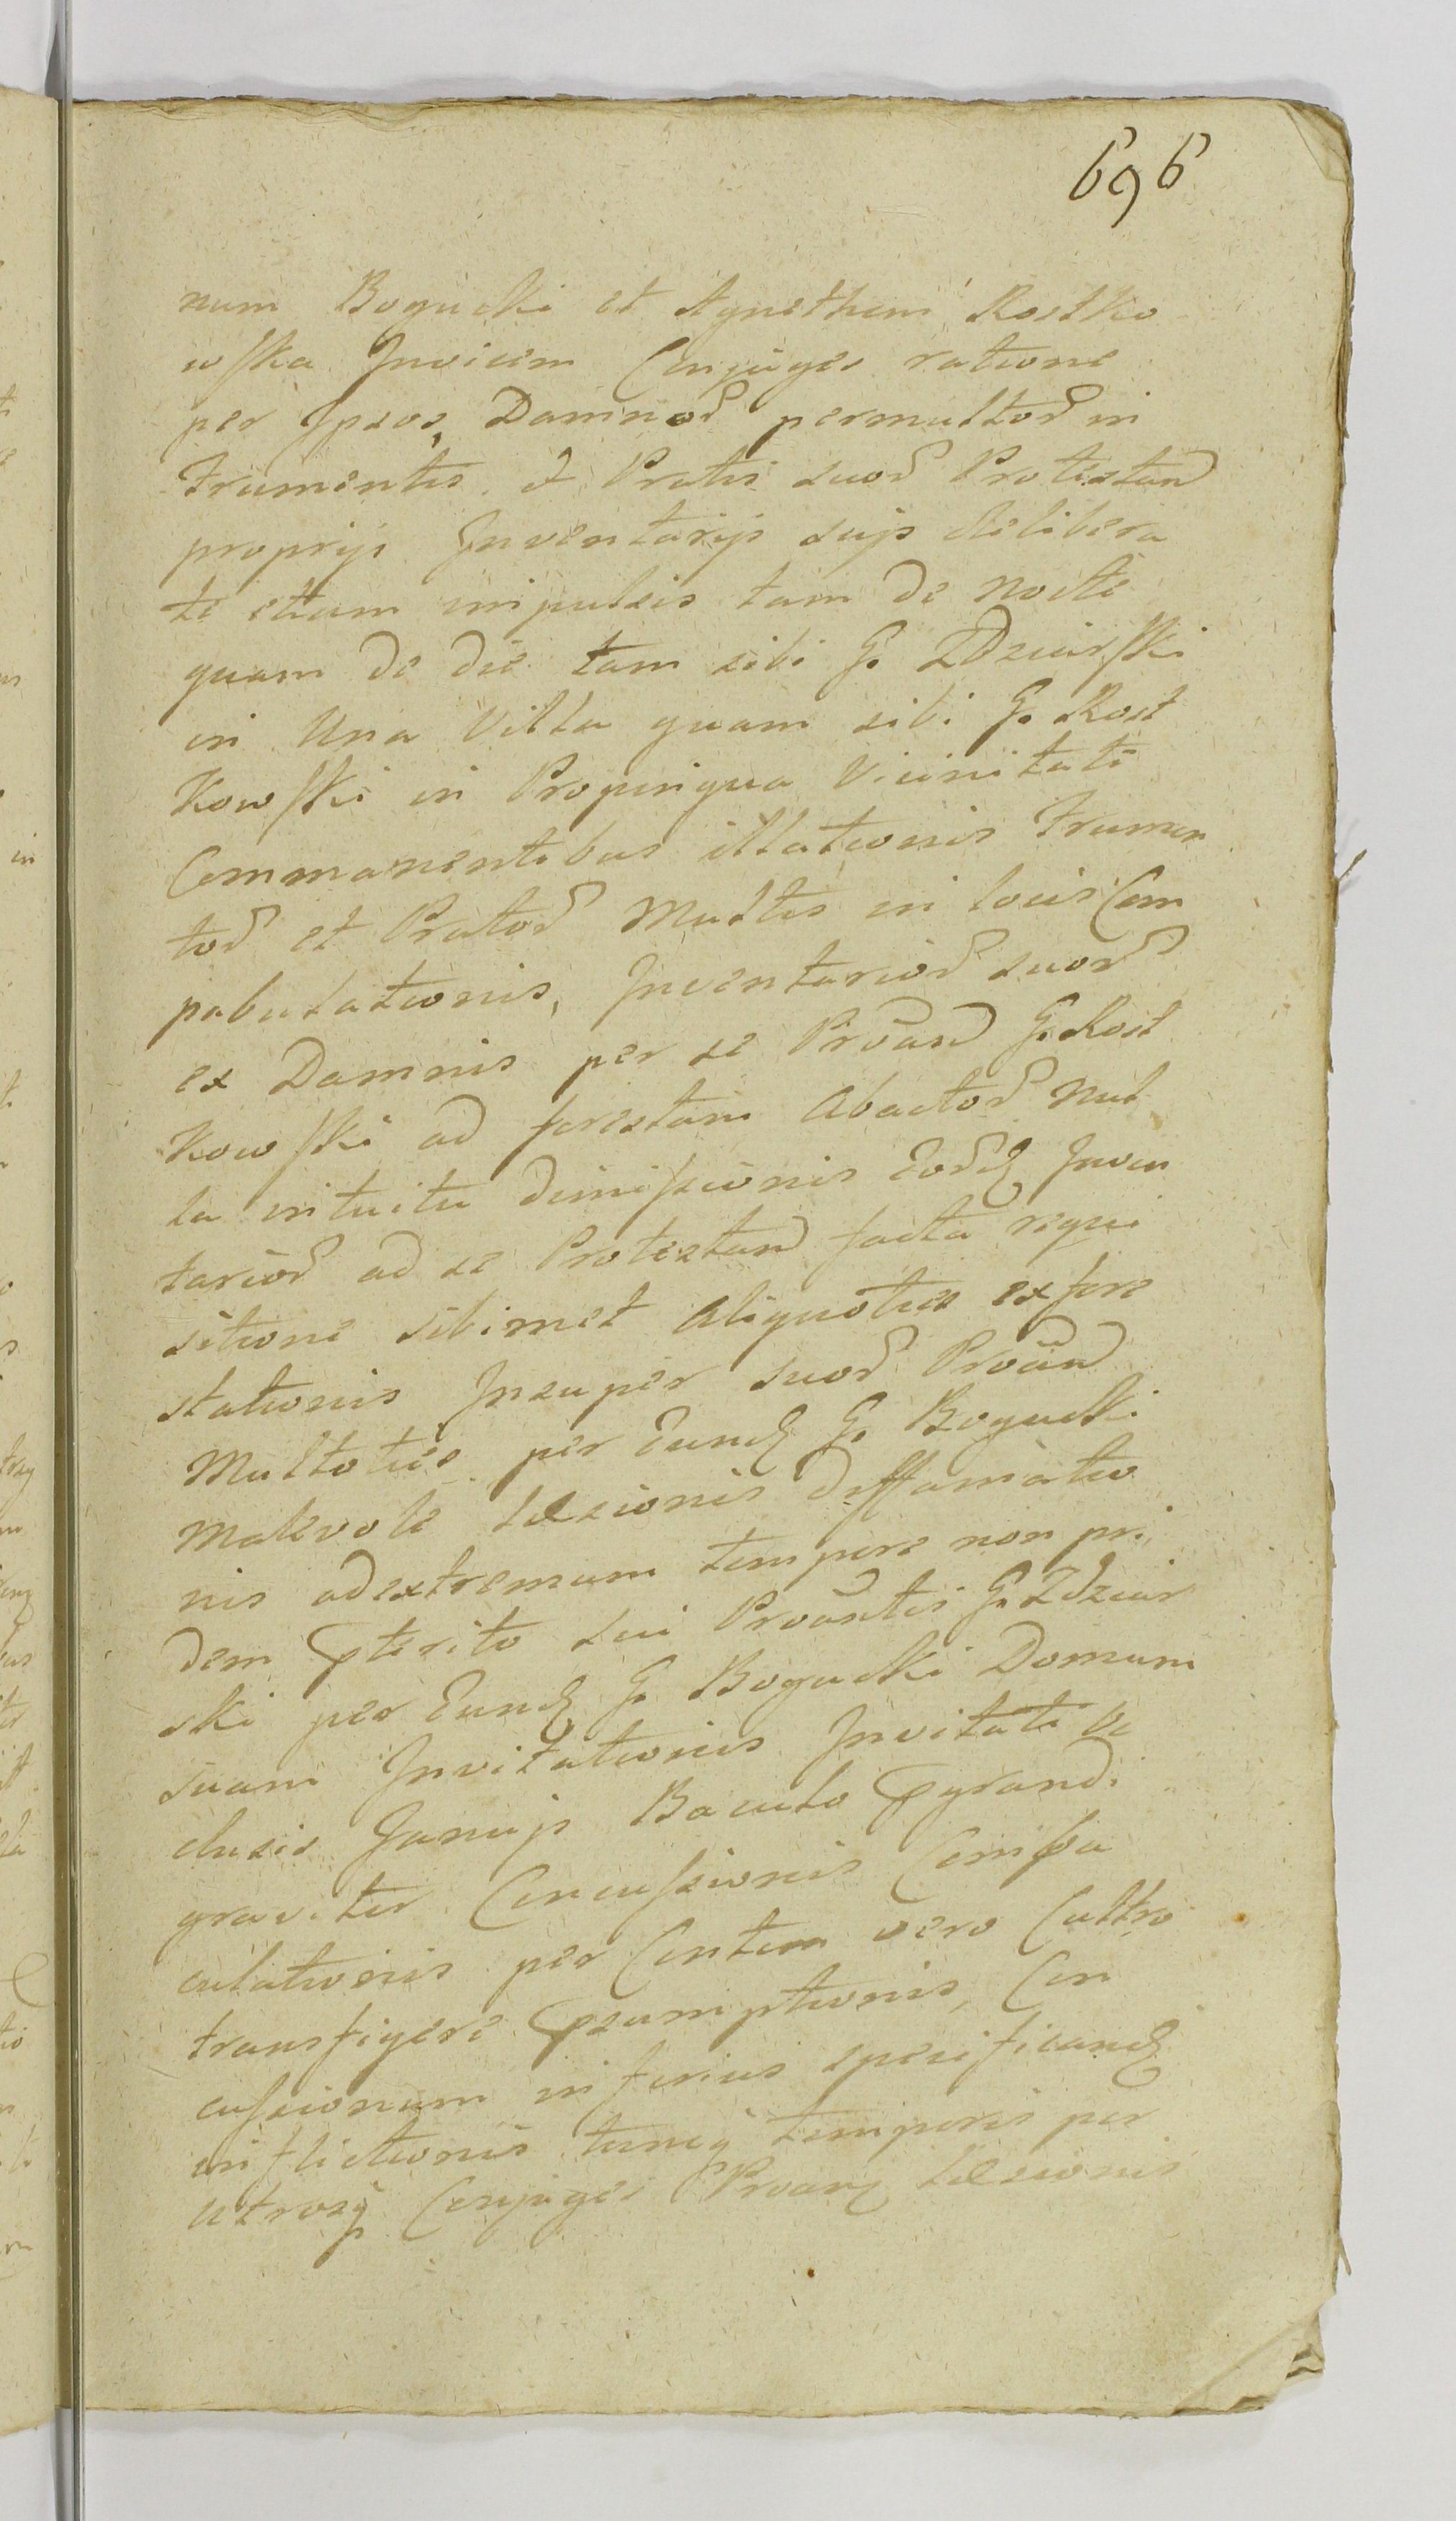 696
num Bogucki et Agnethem Rostko
wska Invicem Conjuges ratione
per Ipsos, Damnor permultor in
Frumentis et Pratis suor Protestan
proprijs Inventarijs suis delibera
te etiam impulsis tam de nocte
quam de die tam sibi G. Zdziarski
in Una Villa quam sibi G. Rost
kowski in Propinqua Vicinitate
Commanentibus illationis Frumen
tor et Prator Multis in locis Com
pabulationis, Inventarior suor
ex Damnis per se Proan G. Rost
kowski ad forestam Abactor Nul
la intuitu dimissionis Eor Inven
tarior ad se Protestan facta requi
sitione sibimet Aliquoties exfore
stationis Insuper suor Proan
Multoties per Eund G. Bogucki
Malevole Læsionis diffamatio
nis adextremum tempore non pri
dem Pterito sui Proantis G. Zdziar
ski per Eund G. Bogucki Domum
suam Invitationis Invitati Oc
clusis Januis Baculo Pgrandi
graviter Concussionis Compa
culationis per Contum vero Cultro
transfigere Psumptionis, Con
cussionum inferius specificand
inflictionis tuncq temporis per
utrosq Conjuges Proan Læsionis